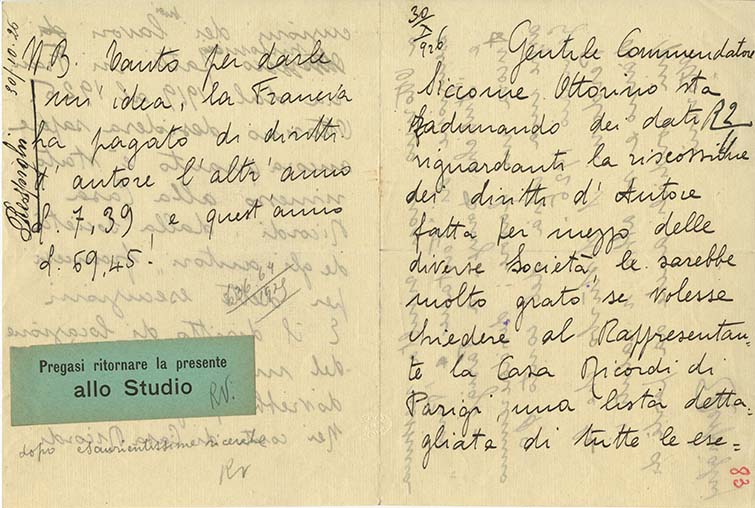 Respighi
30/10.26
N.B. Tanto per darle
un' idea, la Francia
ha pagato di diritti
d' autore l'altr' anno
£. 7,39, e quest'anno
£. 69,45.
1925
Pregasi ritornare la presente
allo Studio
RV.
dopo esaurientissime ricerche
RV
30
X
926
Gentile Commendatore
Siccome Ottorino sta
radunando dei dati
R2
riguardanti la riscossione
dei diritti d' Autore
fatta per mezzo delle
diverse Società, le sarebbe
molto grato se volesse
chiedere al Rappresentan-
te la Casa Ricordi di
Parigi, una lista detta-
gliata di tutte le ese-
83